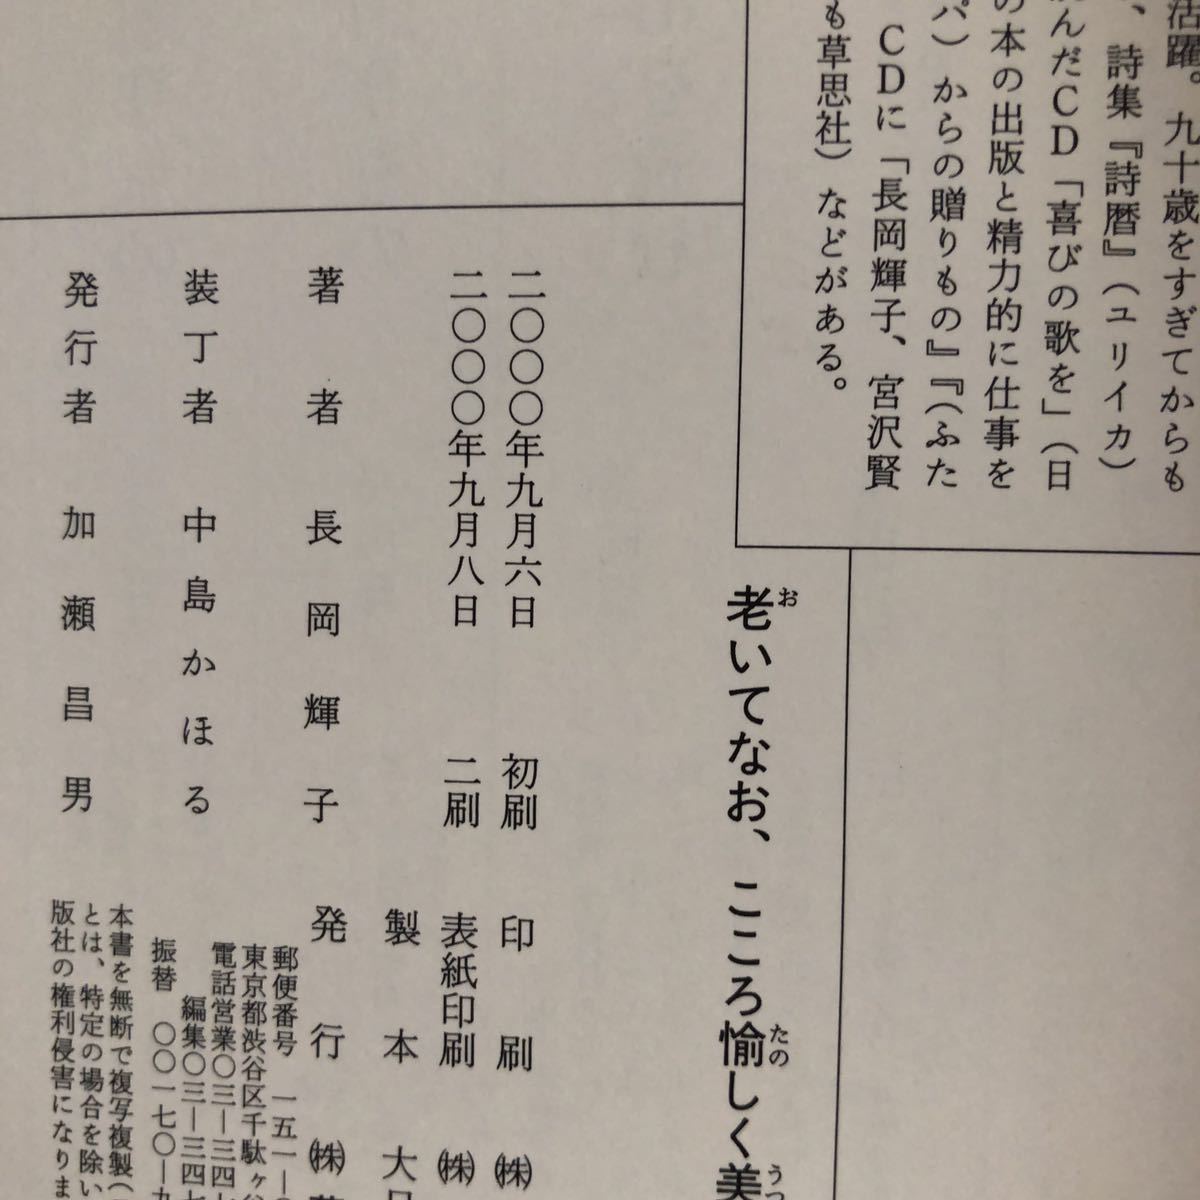 活躍。九十歳をすぎてからも
、詩集『詩暦』（ユリイカ）
んだCD「喜びの歌を」（日
の本の出版と精力的に仕事を
パ）からの贈りもの』『（ふた
CDに「長岡輝子、宮沢賢
も草思社）などがある。
老いてなお、こころ愉しく美
お
たの
うつ
二〇〇〇年九月六日 初刷
二〇〇〇年九月八日 二刷
著者 長岡輝子
装丁者 中島かほる
発行者 加瀬昌男
印刷 ㈱
表紙印刷 ㈱
製本 大
発行 ㈱
郵便番号 一五一―
東京都渋谷区千駄ヶ谷
電話営業〇三―三四七
編集〇三―三四七
振替 〇〇一七〇―九
本書を無断で複写複製（
とは、特定の場合を除い
版社の権利侵害になりま